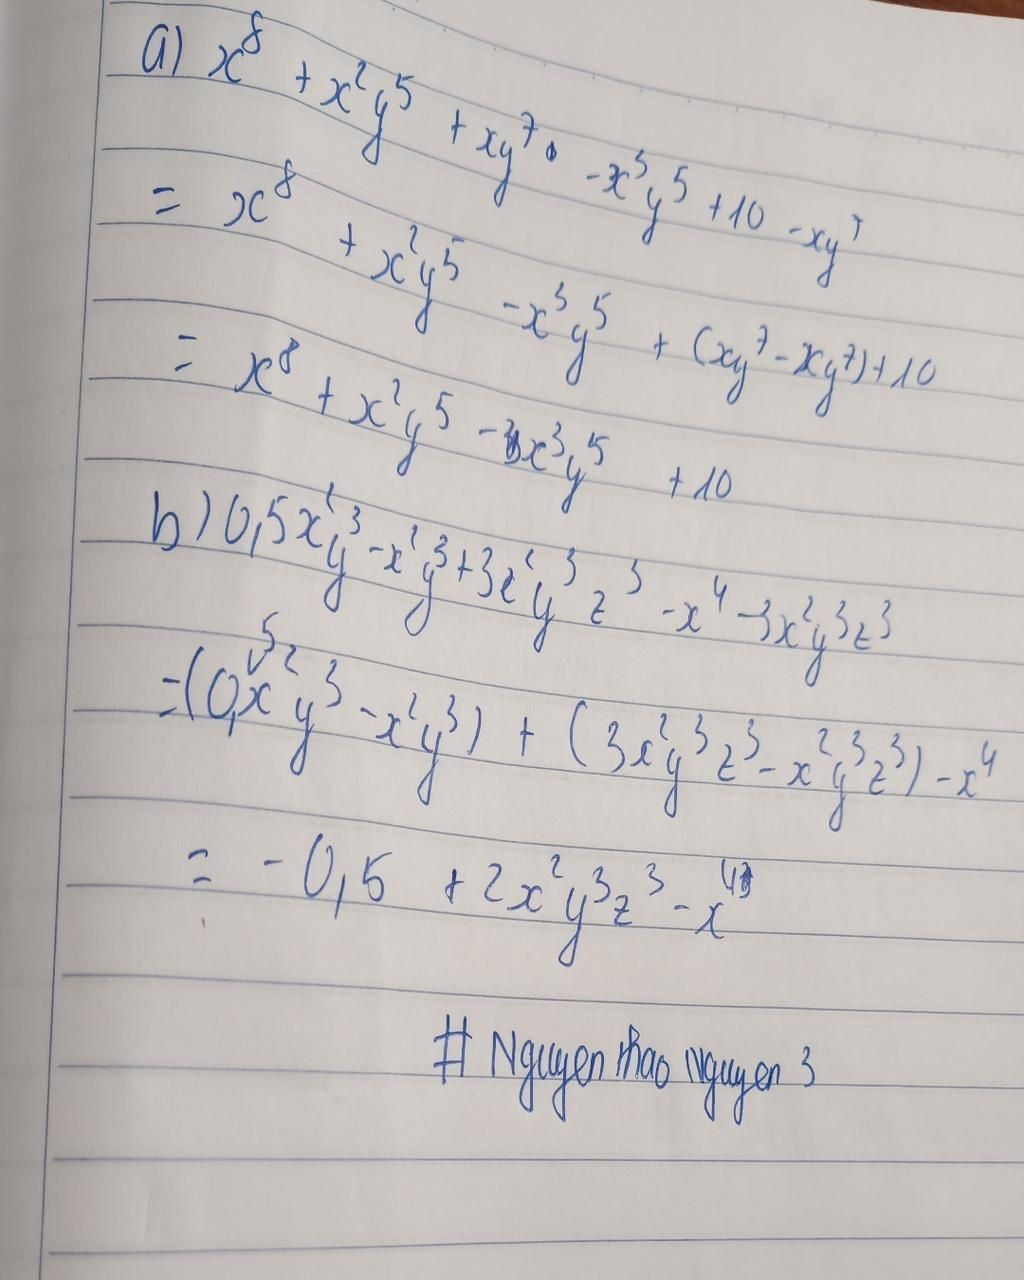 a) x⁸ + x²y⁵ + xy⁷ - x³y⁵ + 10 - xy⁷
= x⁸ + x²y⁵ - x³y⁵ + (xy⁷ - xy⁷) + 10
= x⁸ + x²y⁵ - x³y⁵ + 10
b) 0,5x²y³ - x²y³ + 3x²y³z³ - x⁴ - 3x²y³z³
= (0,5x²y³ - x²y³) + (3x²y³z³ - x²y³z³) - x⁴
= - 0,5 + 2x²y³z³ - x⁴
# Nguyen thao nguyen 3